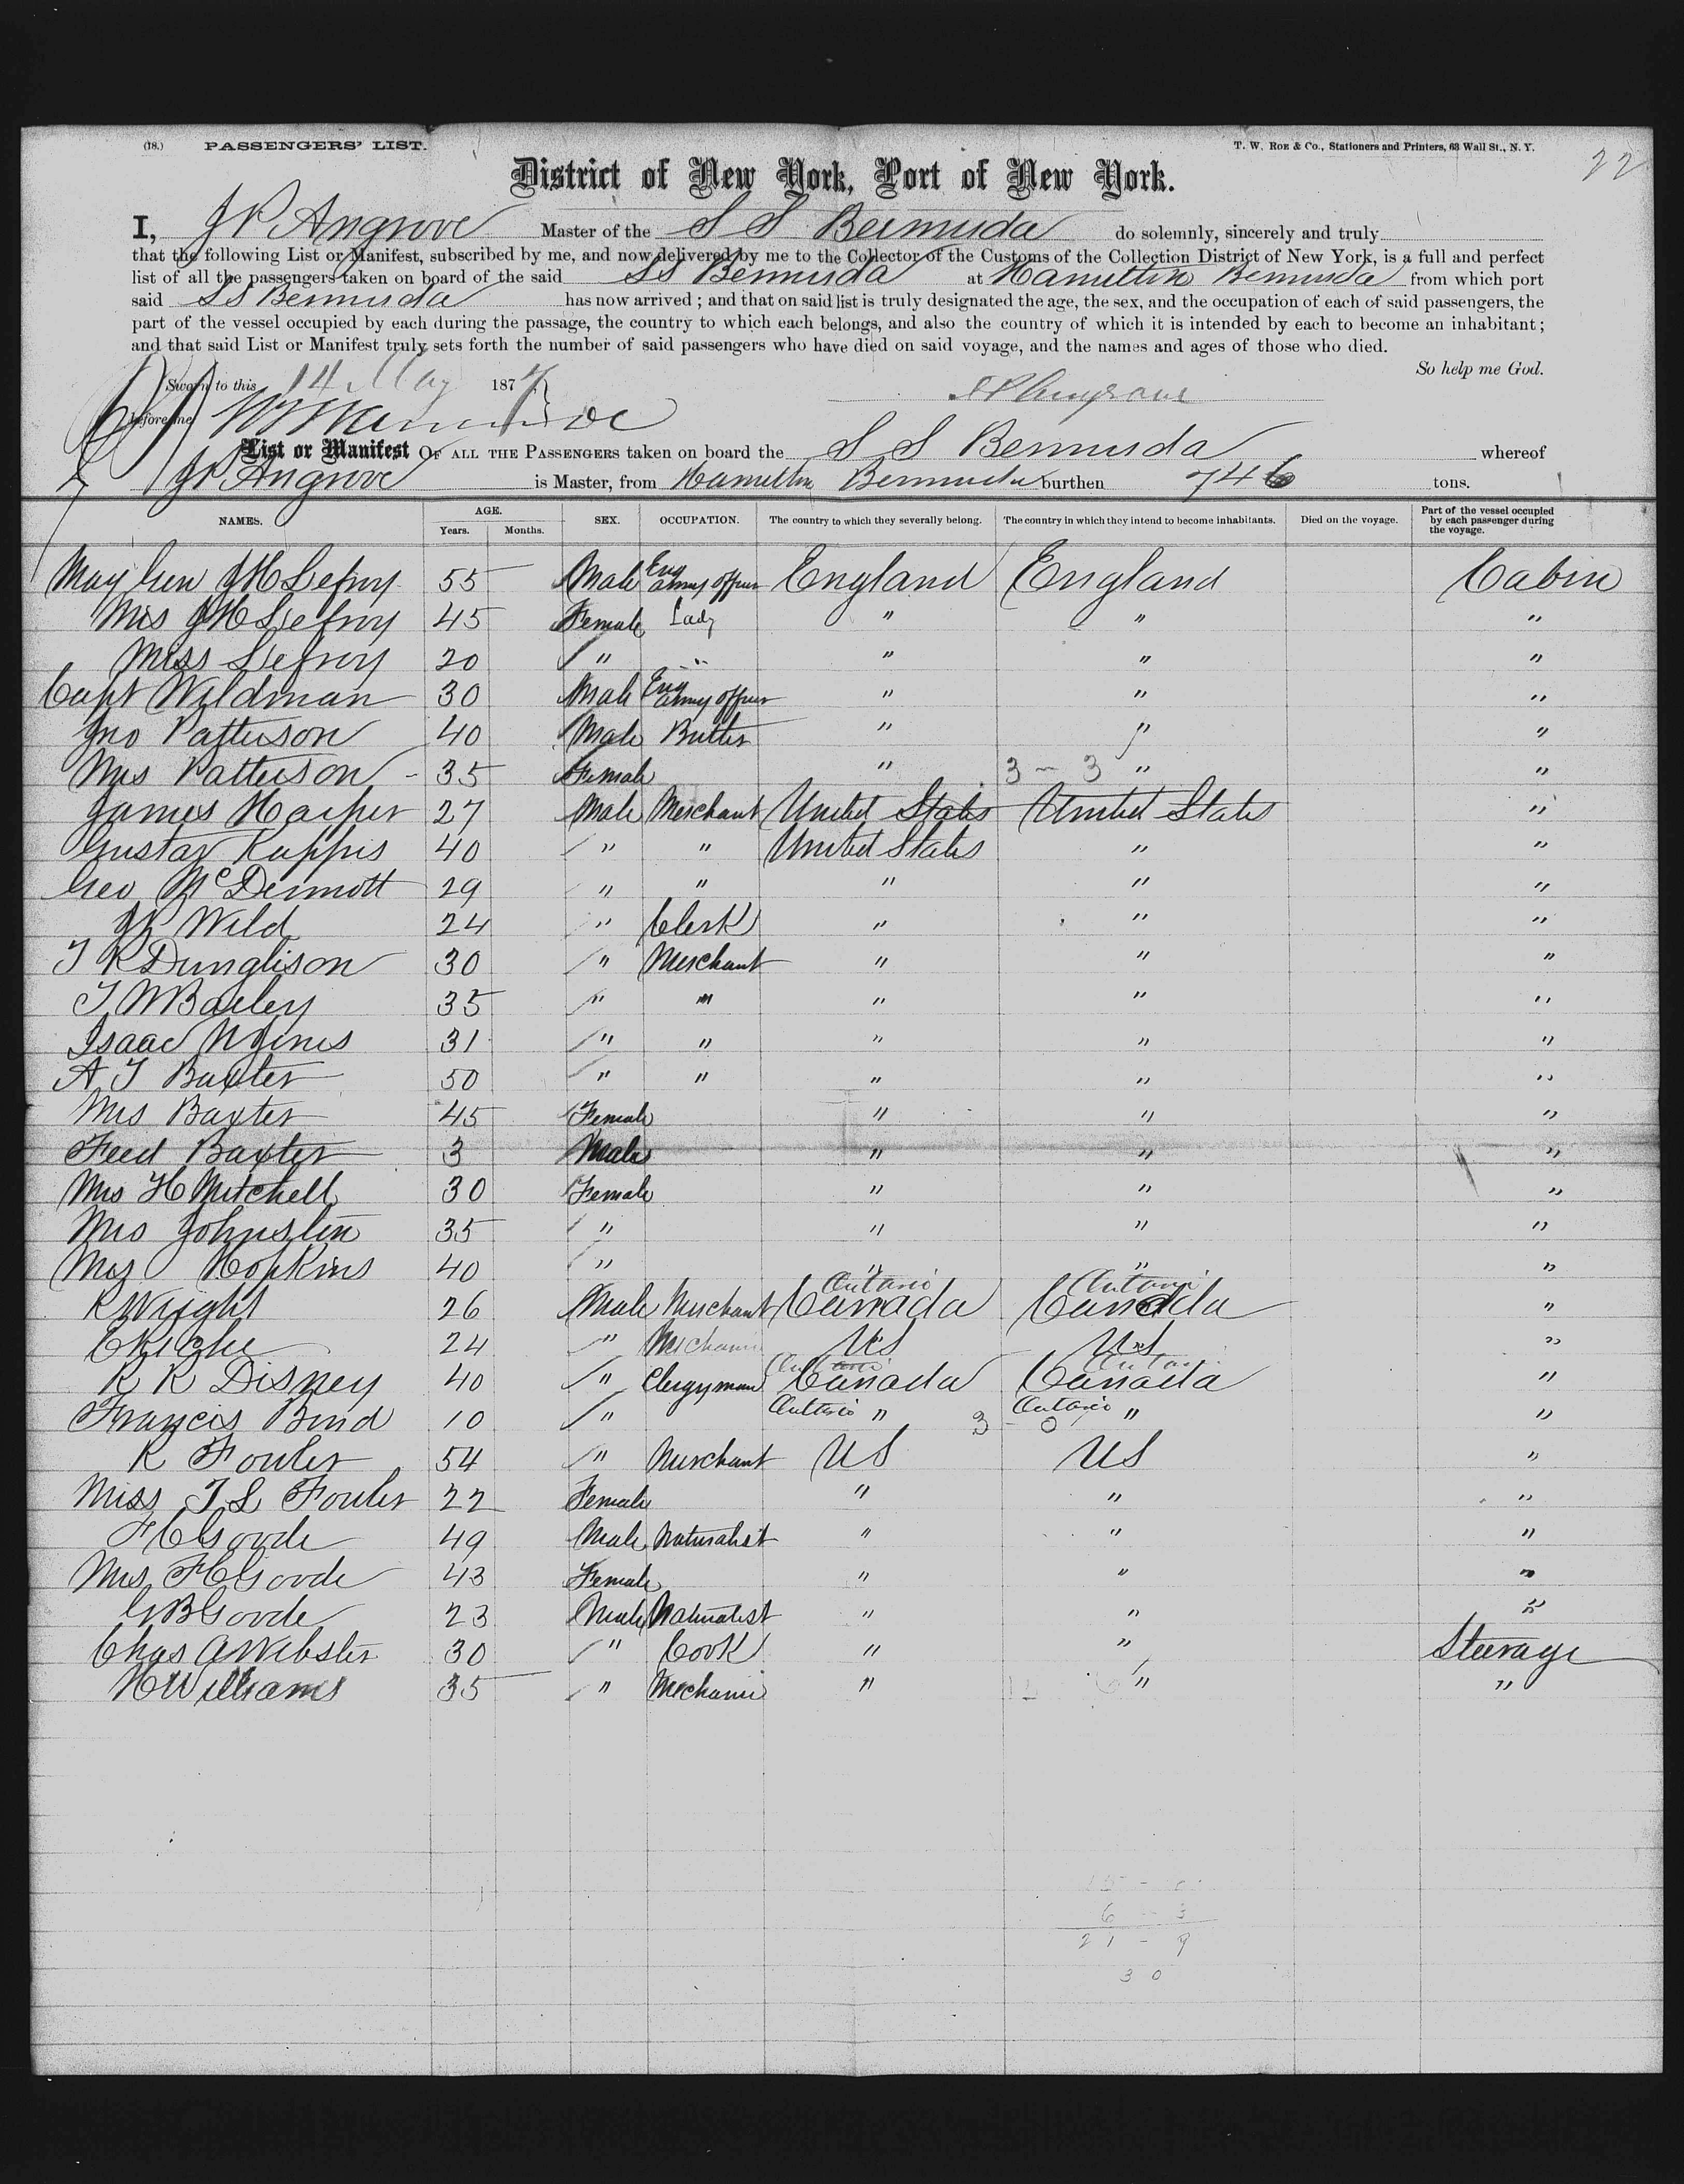 (18.) PASSENGERS' LIST. T. W. ROE & CO., Stationers and Printers, 63 Wall St., N. Y. 22
District of New York, Port of New York.
I, JP Angrove Master of the S S Bermuda do solemnly, sincerely and truly
that the following List or Manifest, subscribed by me, and now delivered by me to the Collector of the Customs of the Collection District of New York, is a full and perfect
list of all the passengers taken on board of the said SS Bermuda at Hamilton Bermuda from which port
said SS Bermuda has now arrived ; and that on said list is truly designated the age, the sex, and the occupation of each of said passengers, the
part of the vessel occupied by each during the passage, the country to which each belongs, and also the country of which it is intended by each to become an inhabitant ;
and that said List or Manifest truly sets forth the number of said passengers who have died on said voyage, and the names and ages of those who died.
So help me God.
Sworn to this 14 May 187 JP Angrove
before me
List or Manifest OF ALL THE PASSENGERS taken on board the S S Bermuda whereof
JP Angrove is Master, from Hamilton Bermuda burthen 746 tons.
NAMES. AGE. Years. Months. SEX. OCCUPATION. The country to which they severally belong. The country in which they intend to become inhabitants. Died on the voyage. Part of the vessel occupied by each passenger during the voyage.
May Gen JH Lefroy 55 Male Eng army officer England England Cabin
Mrs JH Lefroy 45 Female Lady " " "
Miss Lefroy 20 " " " " "
Capt Wildman 30 Male Eng army officer " " "
Jno Patterson 40 Male Butler " " "
Mrs Patterson 35 Female " 3 - 3 " "
James Harper 27 Male Merchant United States United States "
Gustav Kuppis 40 " " United States " "
Geo McDermott 29 " " " " "
JP Wild 24 " Clerk " " "
T R Dunglison 30 " Merchant " " "
T W Bailey 35 " " " " "
Isaac 31 " " " " "
A T Baxter 50 " " " " "
Mrs Baxter 45 Female " " "
Fred Baxter 3 Male " " "
Mrs H Mitchell 30 Female " " "
Mrs Johnston 35 " " " "
Mrs Hopkins 40 " " " "
R Wright 26 Male Merchant Ontario Canada Ontario Canada "
24 " Mechanic US US "
R R Disney 40 " Clergyman Ontario Canada Ontario Canada "
Francis Bind 10 " Ontario " 3 - 0 Ontario " "
R Fowler 54 " Merchant US US "
Miss T L Fowler 22 Female " " "
F C Goode 49 Male Naturalist " " "
Mrs F C Goode 43 Female " " "
G B Goode 23 Male Naturalist " " "
Chas A Webster 30 " Cook " " Steerage
H Williams 35 " Mechanic " " "
6 - 3
21 - 9
30